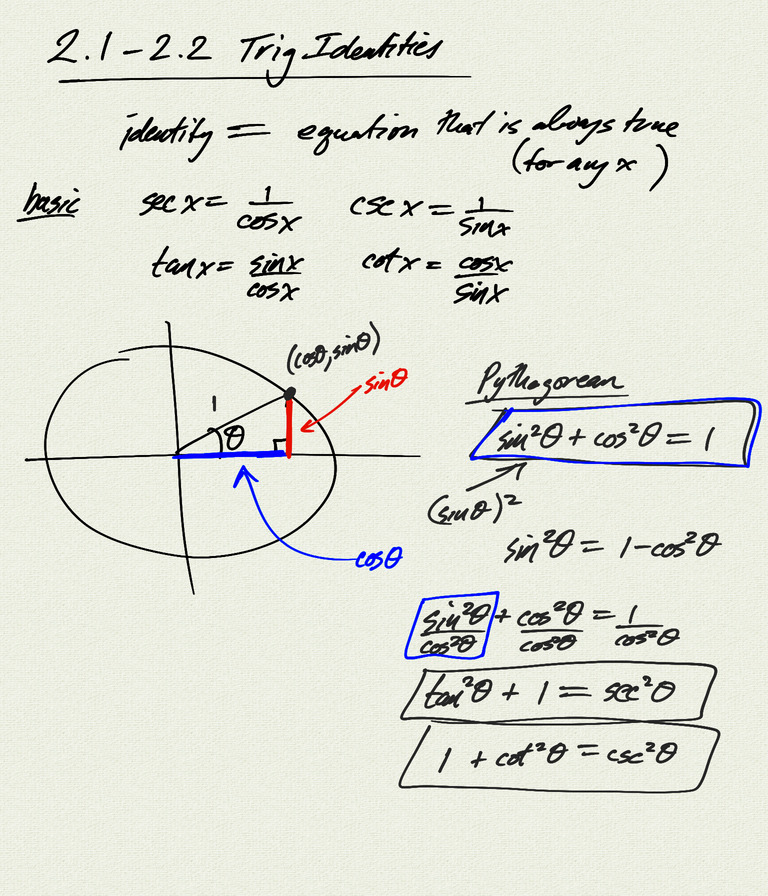 2.1-2.2 Trig Identities
identity = equation that is always true
(for any x)
basic sec x = 1/cos x csc x = 1/sin x
tan x = sin x/cos x cot x = cos x/sin x
(cosθ, sinθ)
sinθ
1
θ
cosθ
Pythagorean
sin²θ + cos²θ = 1
(sinθ)²
sin²θ = 1-cos²θ
sin²θ/cos²θ + cos²θ/cos²θ = 1/cos²θ
tan²θ + 1 = sec²θ
1 + cot²θ = csc²θ